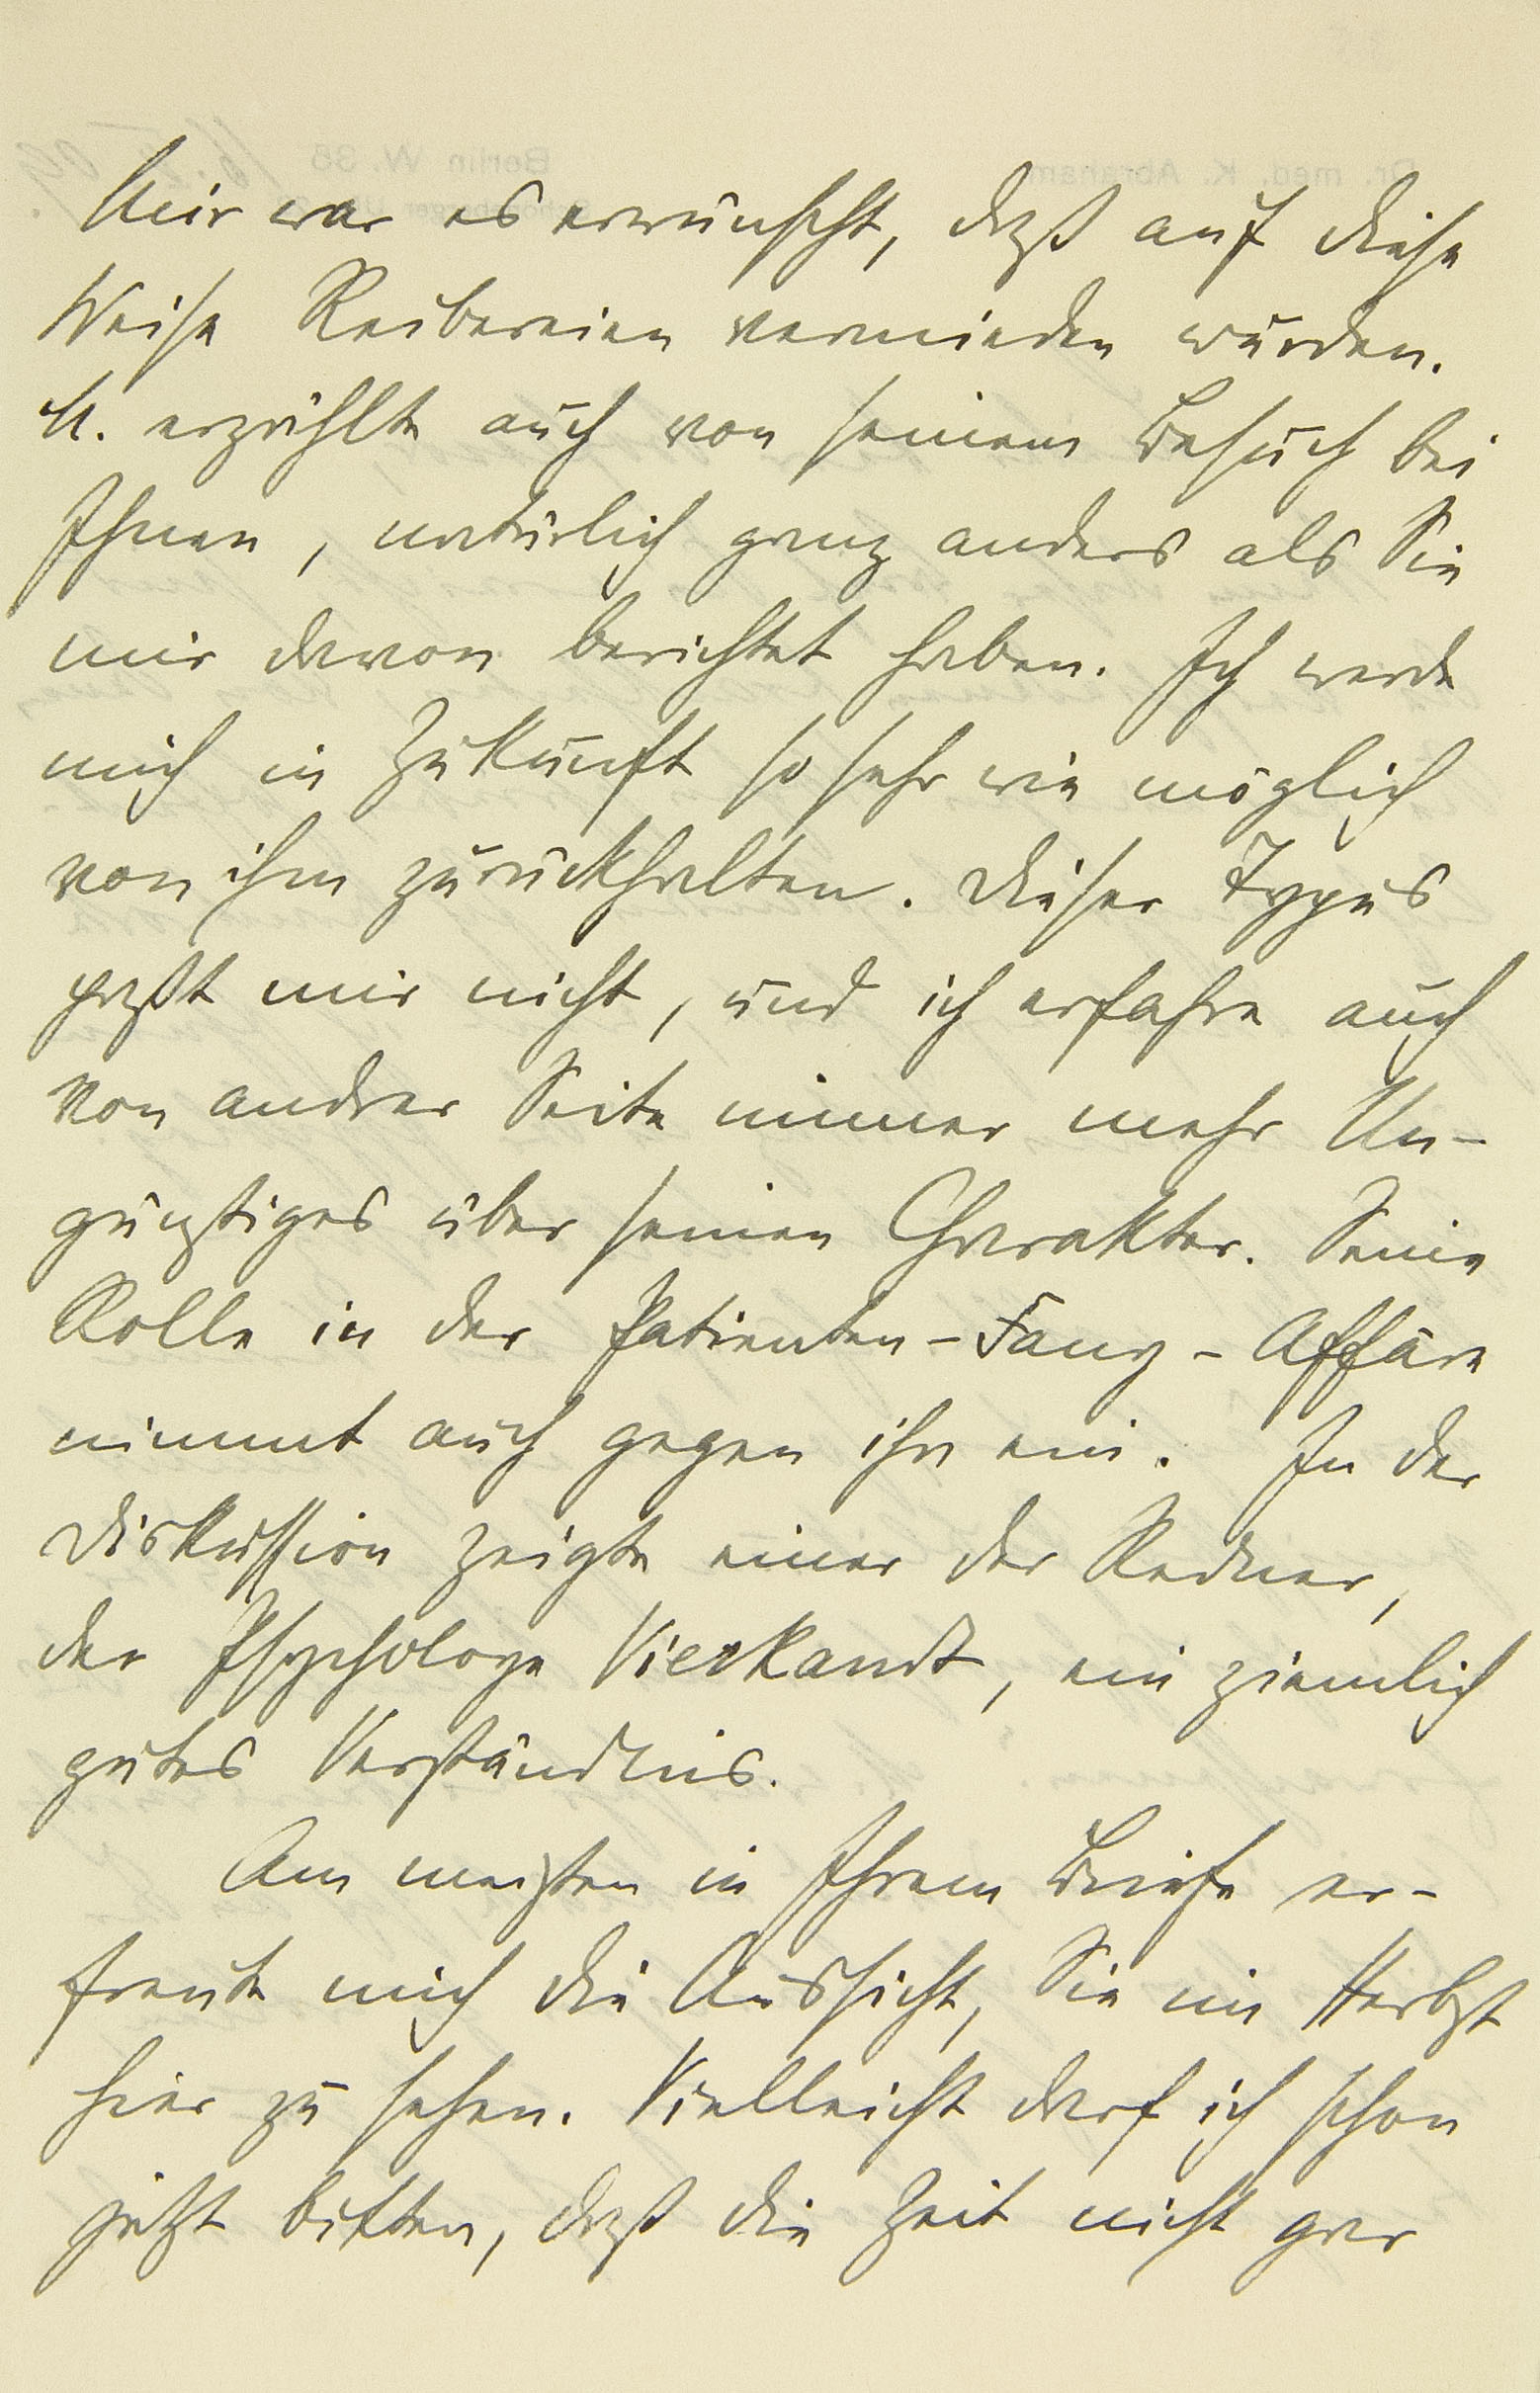 Mir war es erwünscht, daß auf diese
Weise Reibereien vermieden wurden.
M. erzählte auch von seinem Besuch bei
Ihnen, natürlich ganz anders als Sie
mir davon berichtet haben. Ich werde
mich in Zukunft so sehr wie möglich
von ihm zurückhalten. Dieser Typus
paßt mir nicht, und ich erfahre auch
von andrer Seite immer mehr Un-
günstiges über seinen Charakter. Seine
Rolle in der Patienten-Fang-Affäre
nimmt auch gegen ihn ein. In der
Diskussion zeigte einer der Redner,
der Psychologe Vierkandt, ein ziemlich
gutes Verständnis.
Am meisten in Ihrem Briefe er-
freut mich die Aussicht, Sie im Herbst
hier zu sehen. Vielleicht darf ich schon
jetzt bitten, daß die Zeit nicht gar